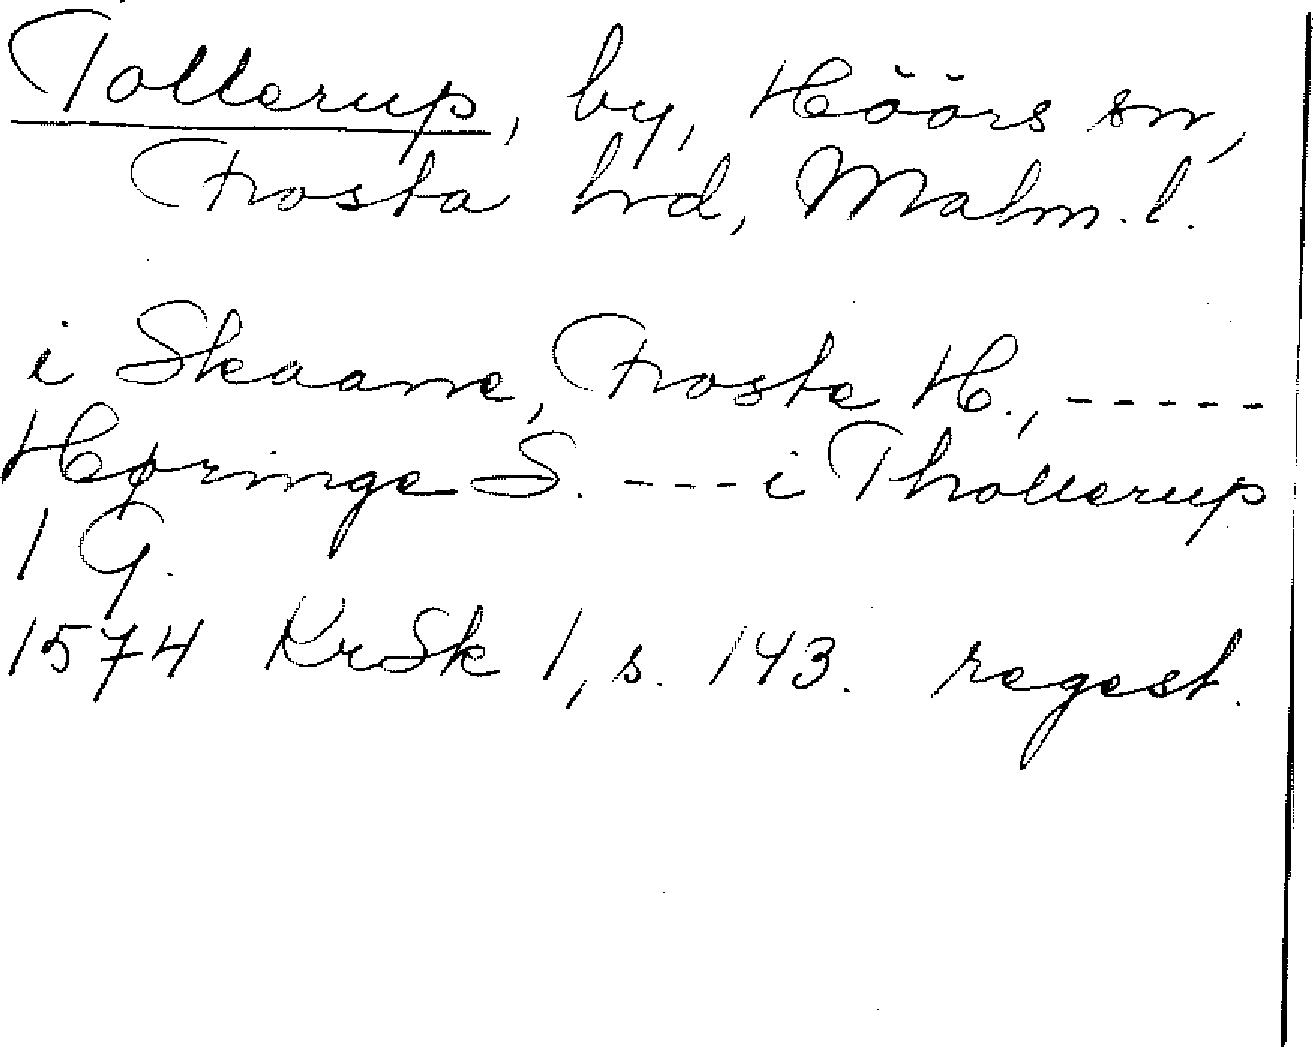 Tollerup, by, Höörs sn,
Frosta hrd, Malm. l.
i Skaane, Froste H., -----
Høringe S. --- i Thollerup
1 G.
1574 KrSk 1, s. 143. regest.